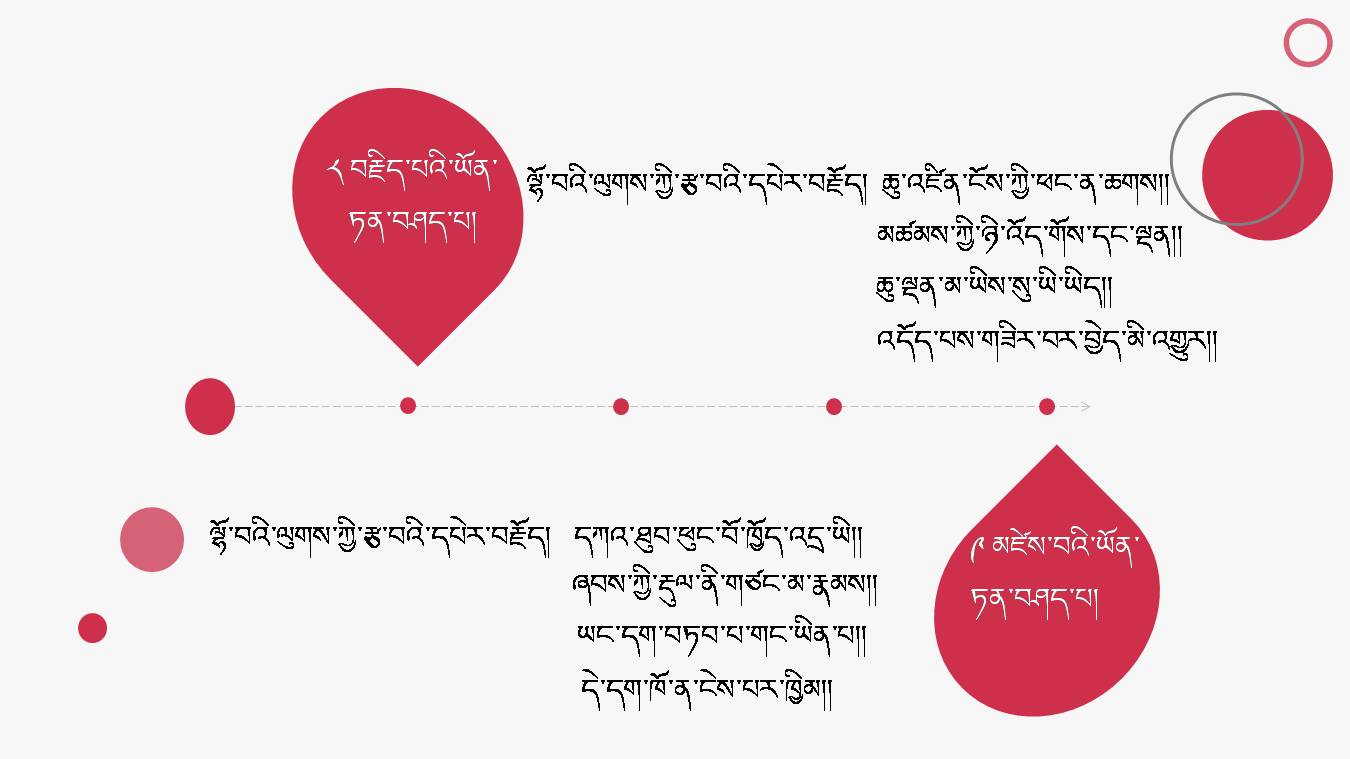 ༨ བརྗིད་པའི་ཡོན་
ཏན་བཤད་པ།
ལྷོ་བའི་ལུགས་ཀྱི་རྩ་བའི་དཔེར་བརྗོད། ཆུ་འཛིན་ངོས་ཀྱི་ཕང་ན་ཆགས།།
མཚམས་ཀྱི་ཉི་འོད་གོས་དང་ལྡན།།
ཆུ་ལྡན་མ་ཡིས་སུ་ཡི་ཡིད།།
འདོད་པས་གཟིར་བར་བྱེད་མི་འགྱུར།།
ལྷོ་བའི་ལུགས་ཀྱི་རྩ་བའི་དཔེར་བརྗོད། དཀའ་ཐུབ་ཕུང་བོ་ཁྱོད་འདྲ་ཡི།།
ཞབས་ཀྱི་རྡུལ་ནི་གཙང་མ་རྣམས།།
ཡང་དག་བཏབ་པ་གང་ཡིན་པ།།
དེ་དག་ཁོ་ན་ངེས་པར་ཁྱིམ།།
༩ མཛེས་བའི་ཡོན་
ཏན་བཤད་པ།